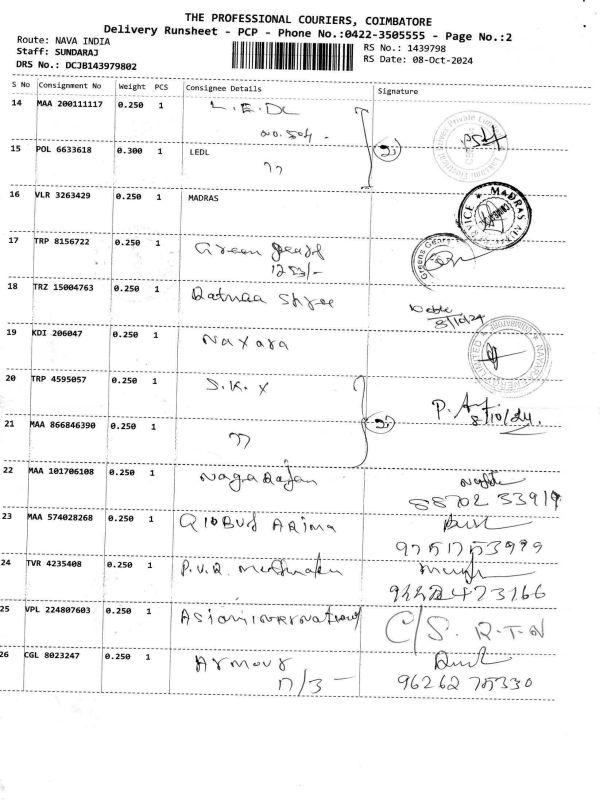 THE PROFESSIONAL COURIERS, COIMBATORE
Delivery Runsheet - PCP - Phone No.:0422-3505555 - Page No.:2
Route: NAVA INDIA
RS No.: 1439798
Staff: SUNDARAJ
RS Date: 08-Oct-2024
DRS No.: DCJB143979802
S No Consignment No Weight PCS Consignee Details Signature
14 MAA 200111117 0.250 1 L.E.DL
no. 504 -
15 POL 6633618 0.300 1 LEDL
16 VLR 3263429 0.250 1 MADRAS
17 TRP 8156722 0.250 1 Green Gears
1253/-
18 TRZ 15004763 0.250 1 Ratnaa Shree
8/10/24
19 KDI 206047 0.250 1 Naxara
20 TRP 4595057 0.250 1 S.K. X
8/10/24.
21 MAA 866846390 0.250 1
22 MAA 101706108 0.250 1 Nagarajan
88702 33919
23 MAA 574028268 0.250 1
9751753999
24 TVR 4235408 0.250 1 P.V.R.
25 VPL 224807603 0.250 1 C/S. R.T.N
26 CGL 8023247 0.250 1 Armour
17/3 -
96262 75330